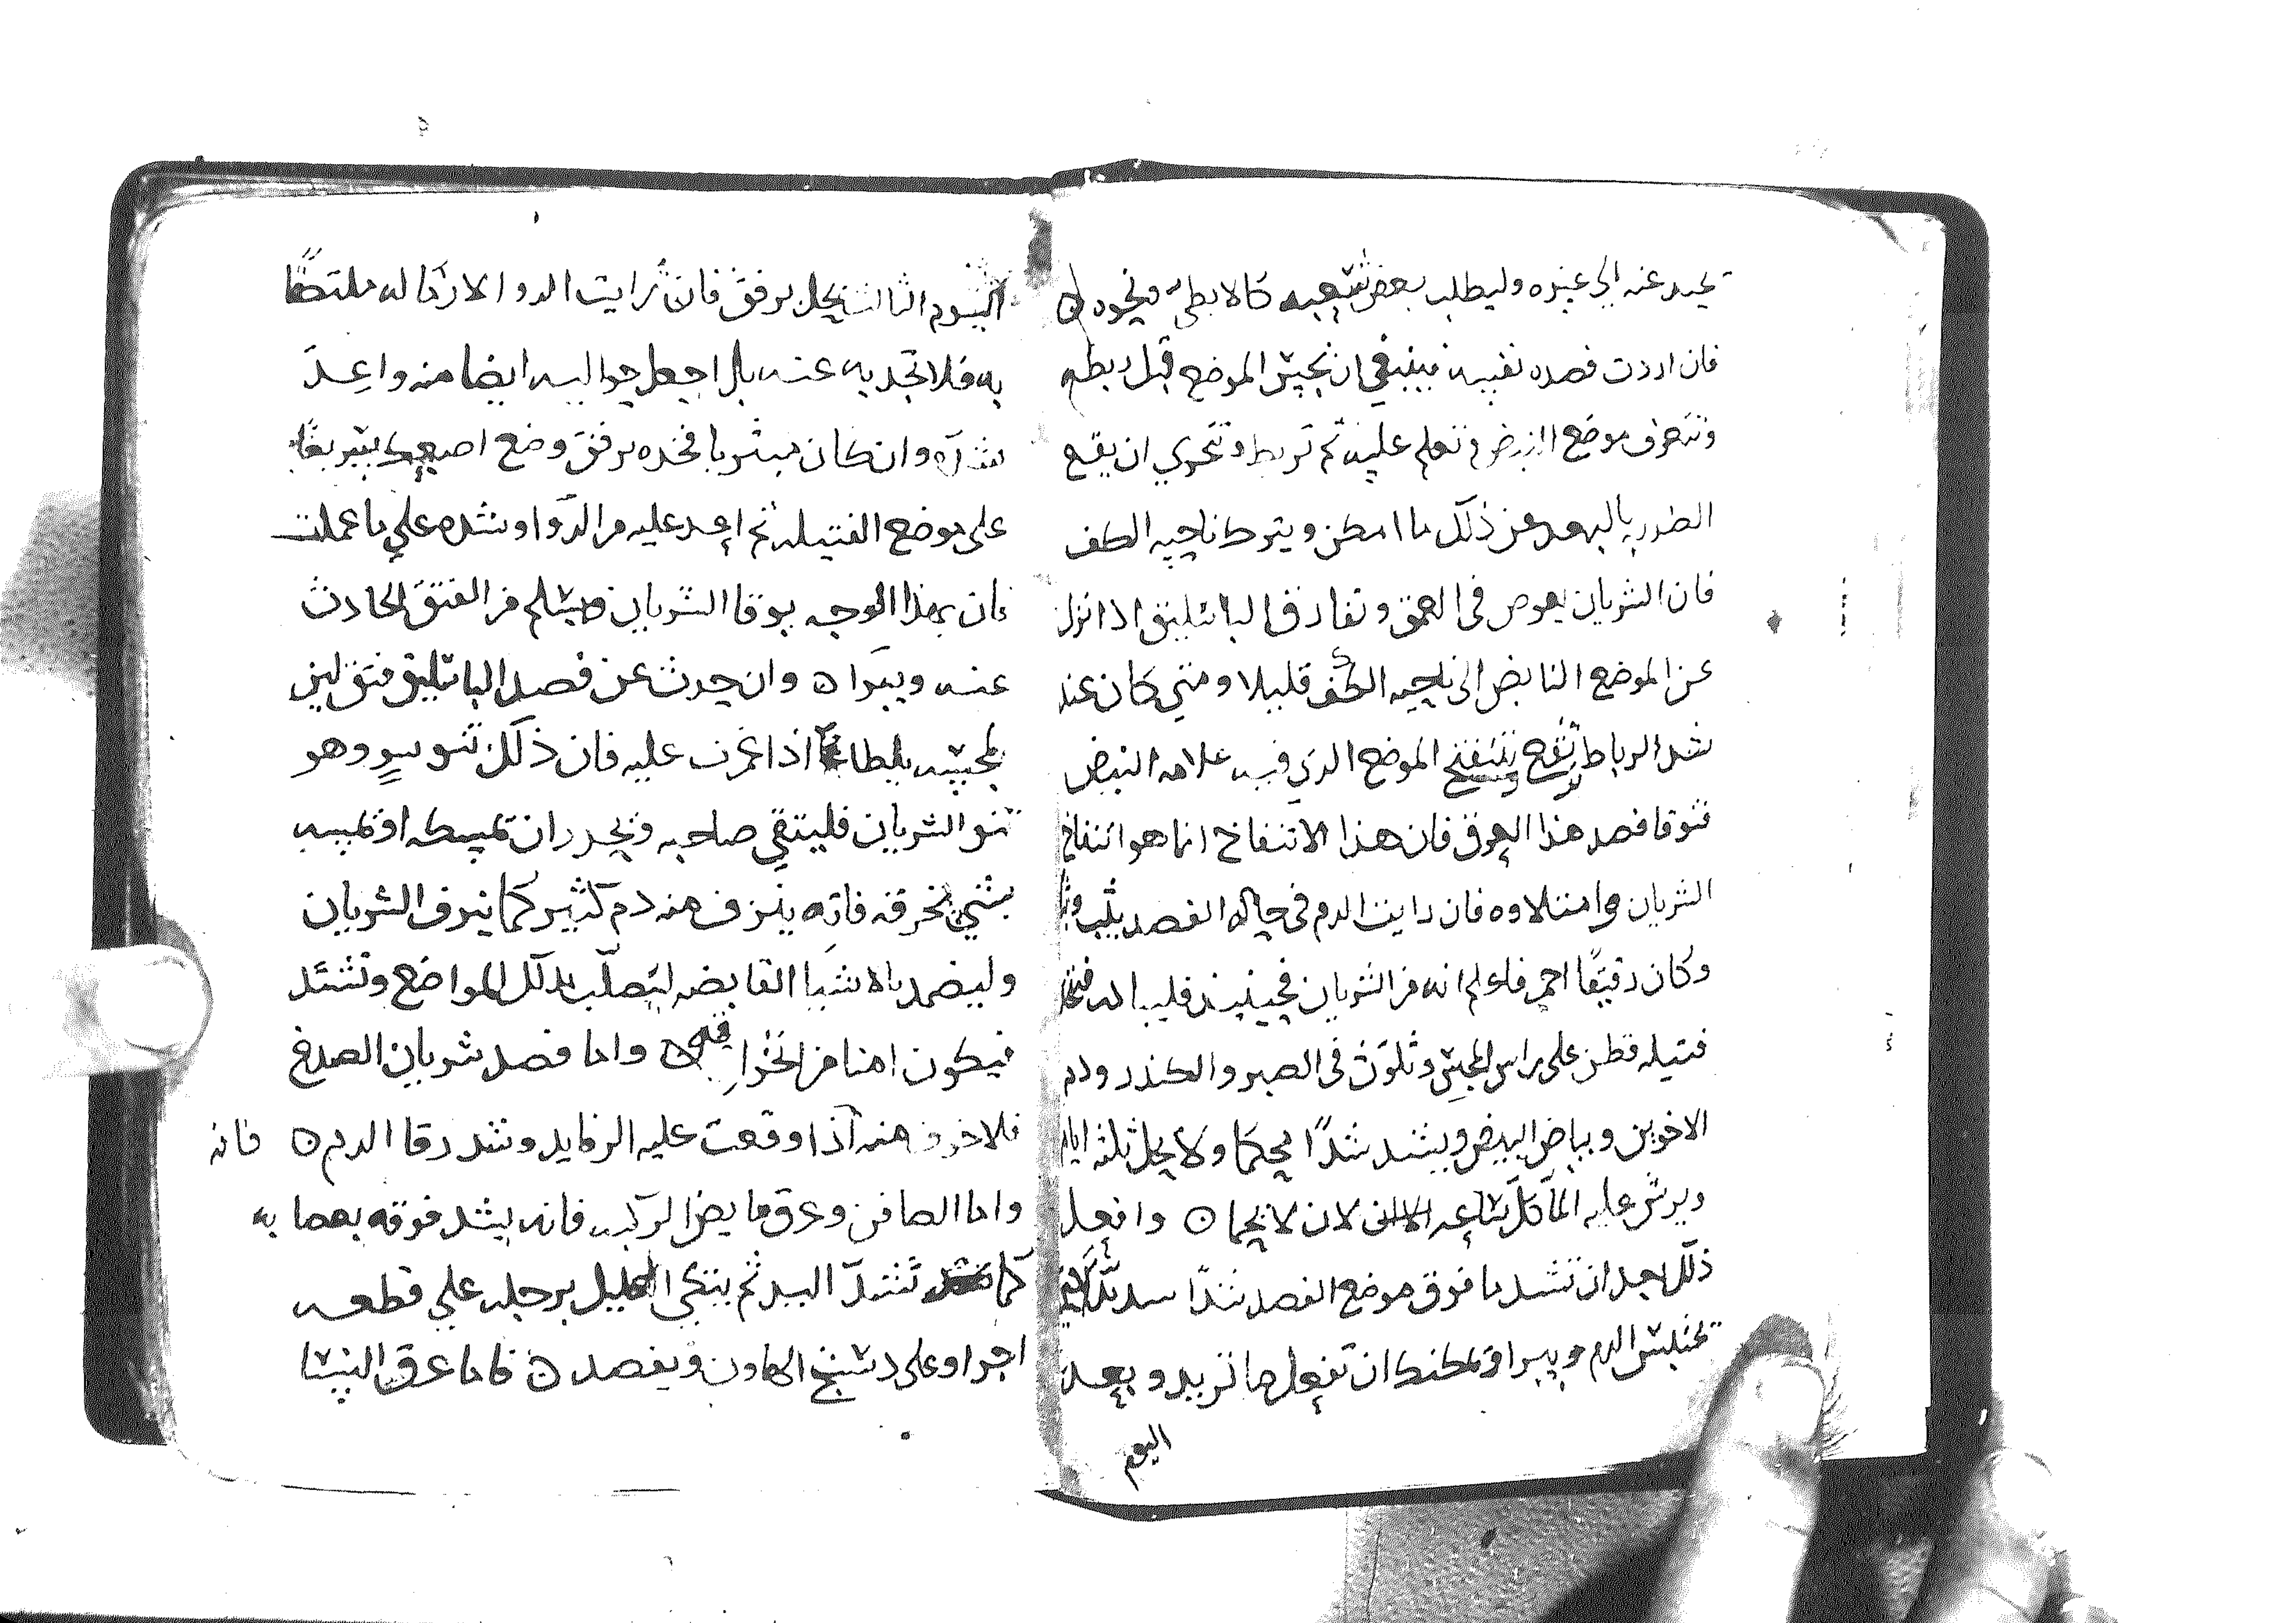 تحيد عنه الي غيره وليطلب بعض شعبه كالابطي ونحوه ه
فان اردت فصده نفسه فينبغي ان تجس الموضع قبل ربطه
وتتعرف موضع النبض وتعلم عليه ثم تربط وتتحري ان يقع
الضربه بالبعد عن ذلك ما امكن ويترك ناحيه الكف
فان الشريان يغوص في العمق وتفارق الباسليق اذا نزل
عن الموضع النابض الي ناحيه الكف قليلا ومتي كان عند
شد الرباط تنتفخ الموضع الدي فيه علامه النبض
فتوقا فصد هذا العرق فان هذا الانتفاخ انما هو انتفاخ
الشريان وامتلاوه فان رايت الدم في حال الفصد يثب
وكان رقيقا احمر فاعلم انه من الشريان فحينيذ
فتيله قطن علي راس المجس وتلوث في الصبر والكندر ودم
الاخوين وبياض البيض ويشد شدا محكما ولا يحل ثلثه ايام
ويرش عليه المآ كل ساعه لان لا يحما ه وافعل
ذلك بعد ان تشد ما فوق موضع الفصد شدا
تحتبس الدم ويمكنك ان تفعل ما تريد وبعد
اليوم
اليوم الثالث يحل برفق فان رايت الدوا لازما له ملتصقا
به فلا تجد به عنه بل اجعل حواليه ايضا منه واعد
شده وان كان متبريا فخده برفق وضع اصبعك سريعا
علي موضع الفتيله ثم اعد عليه من الدوا وشده علي ما عملت
فان بهذا الوجه يوقا الشريان ويسلم من الفتق الحادث
عنه ويبرا ه وان حدث عن فصد الباسليق فتق لين
المجسه اذا غمزت عليه فان ذلك نتو سو وهو
نتو الشريان فليتقي صاحبه ويحدر ان تمسكه او تمسه
بشي نخرقه فانه ينزف منه دم كثير كما ينزف الشريان
وليضمد بالاشيا القابضه ليتصلب بدلك المواضع وتشتد
فيكون امنا من انخراقه ه واما فصد شريان الصدغ
فلا خوف منه اذا وقعت عليه الرفايد وشد رقا الدم ه فانه
واما الصافن وعرق مابض الركبه فانه يشد فوقه بعصابه
كما تشد اليد ثم يتكي العليل برجله علي قطعه
اجر او علي دستج الهاون ويفصد ه فاما عرق النسا